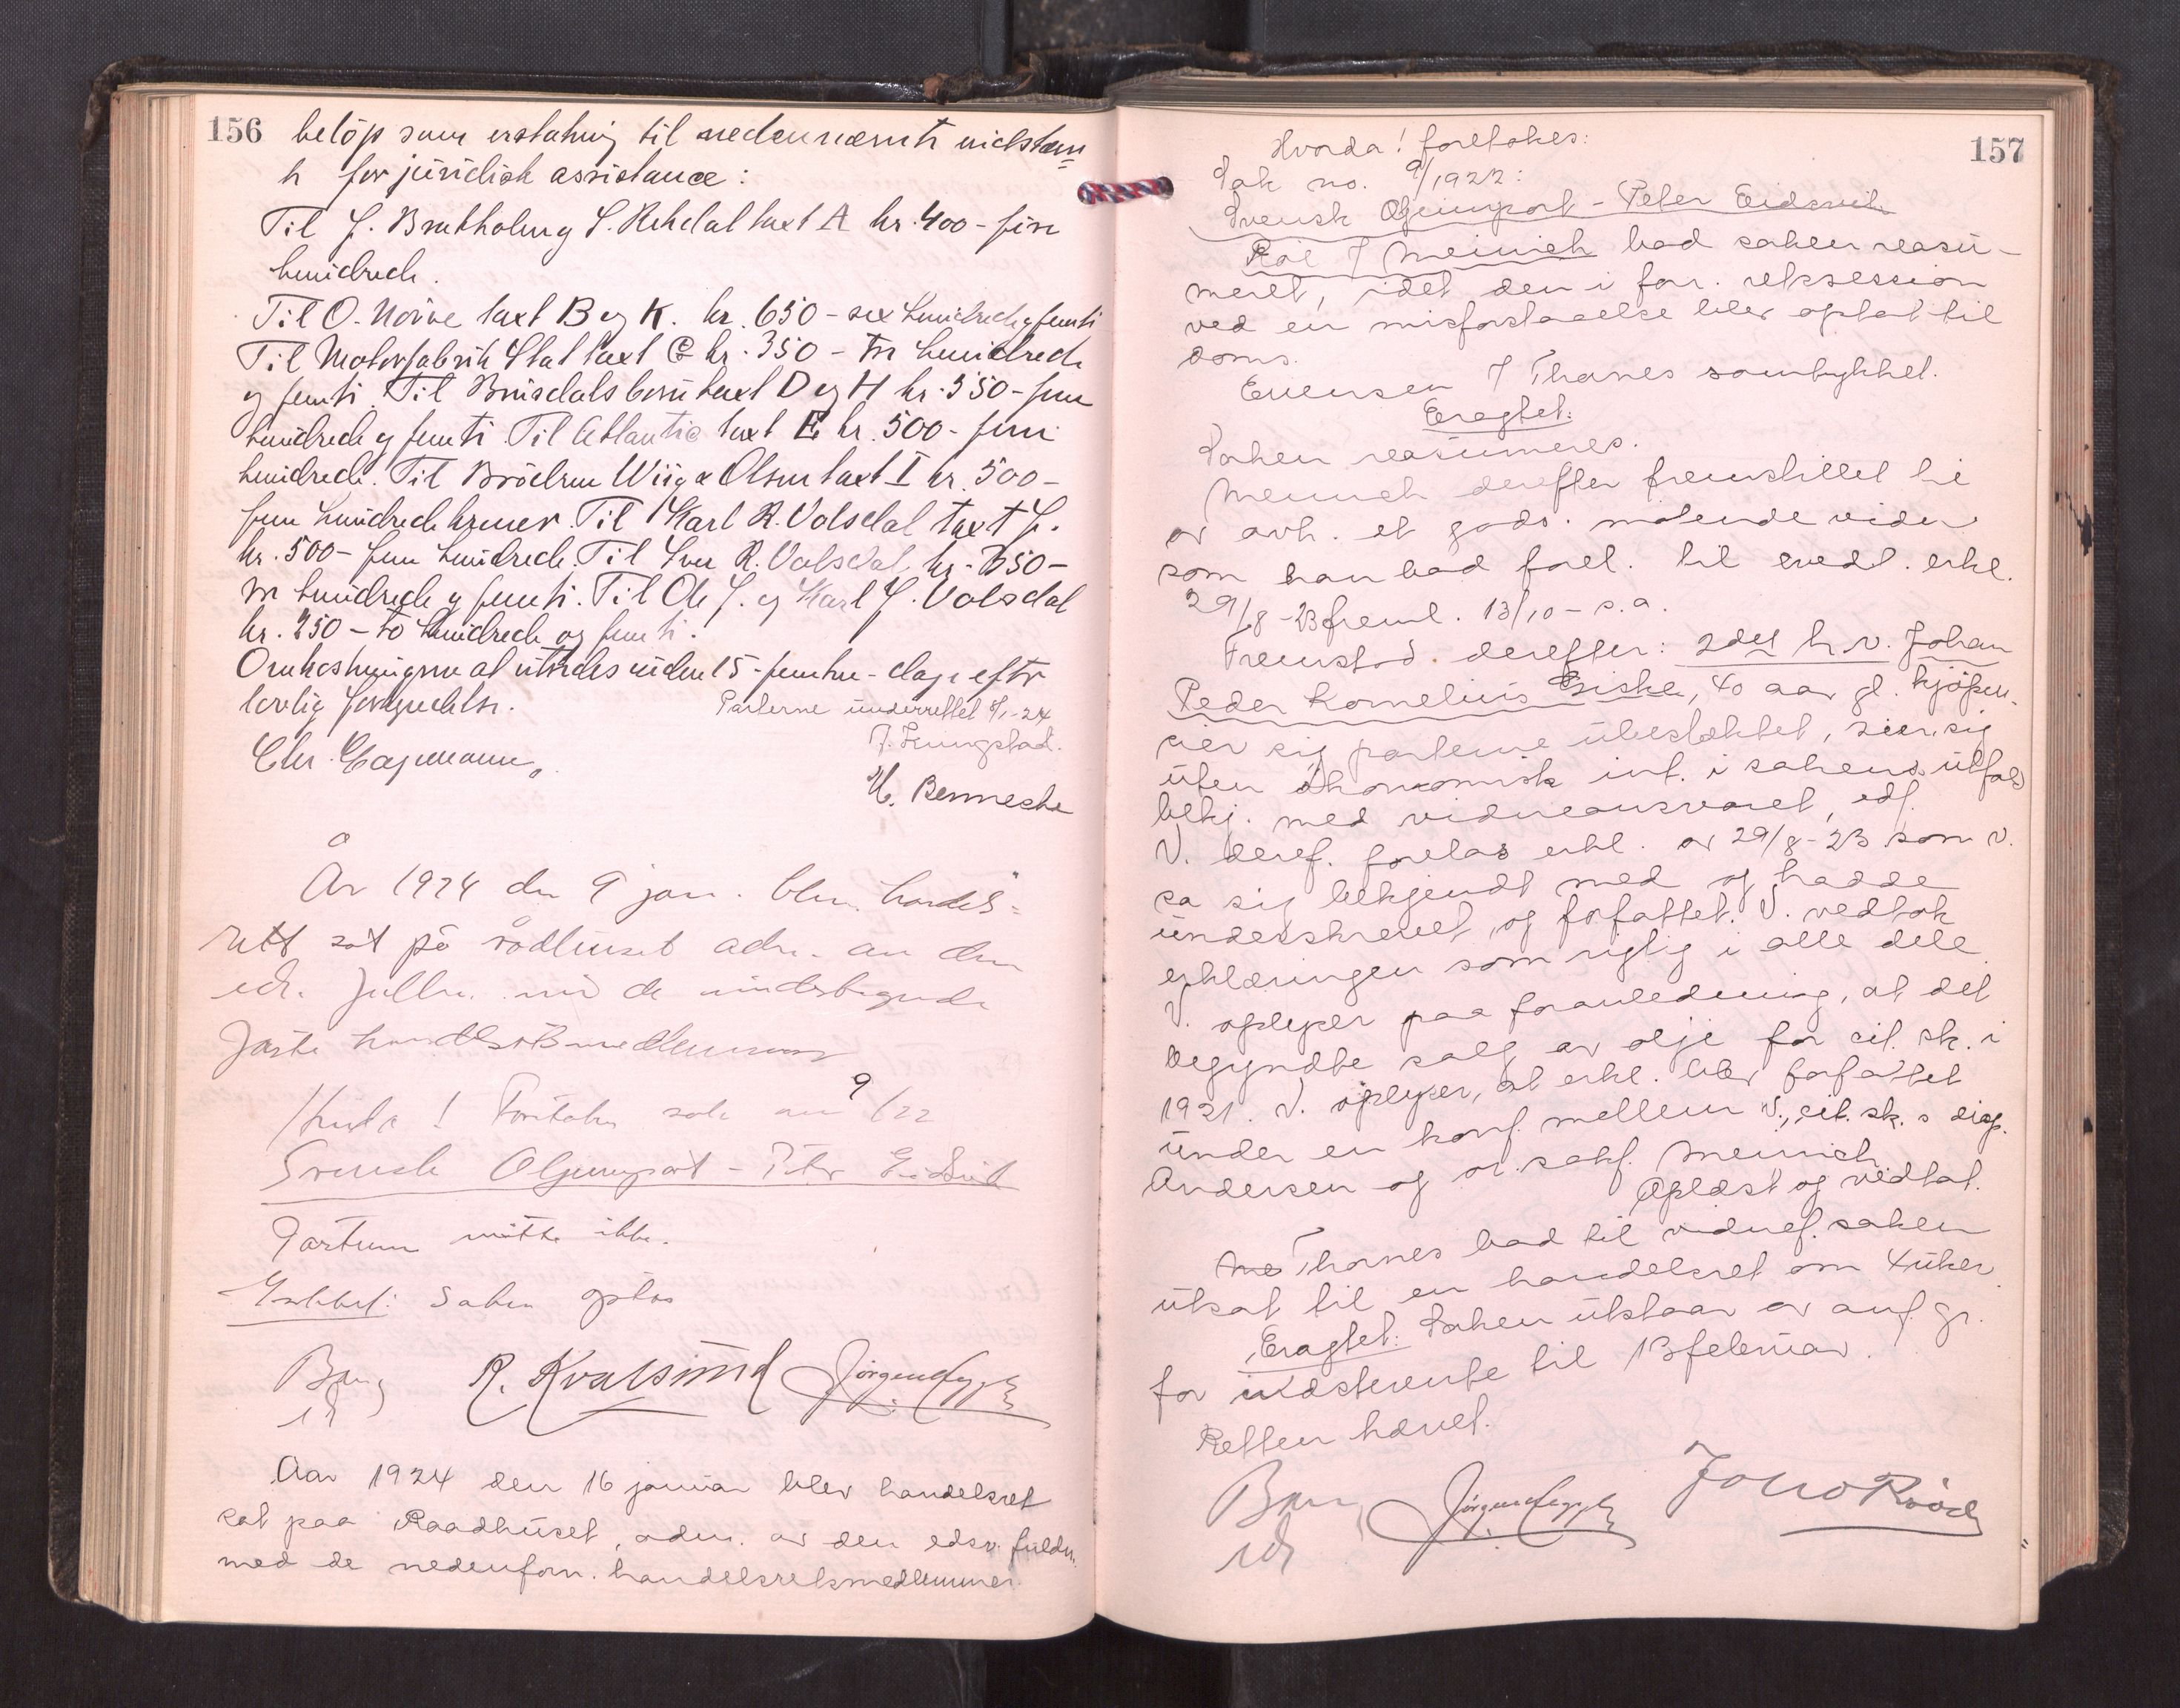 156
belöp som erstatning til nedennævnte vidstøm
te for juridisk assistance:
Til J. Bratholm og S. Rekdal taxt A kr. 400 - fire
hundrede.
Til O. Nörve taxt B og K. kr. 650 - sex hundrede og femti
Til Motorfabrik Stat taxt C kr. 350 - tre hundrede
og femti. Til Brusdals taxt D og H kr. 550 - fem
hundrede og femti Til Atlantic taxt E kr. 500 - fem
hundrede. Til Brödrene Wiig & Olsen taxt I kr. 500 -
fem hundrede kroner. Til Karl R. Volsdal taxt J.
kr. 500 - fem hundrede. Til Iver R. Volsdal kr. 350 -
tre hundrede og femti. Til Ole J. og Karl J. Volsdal
kr. 250 - to hundrede og femti.
Omkostningerne at utredes inden 15 - femten - dage efter
lovlig forkyndelse.
Parterne underrettet 9/1-24
J. Ringstad.
Chr. Hagemann
H. Benneche
År 1924 den 9 jan. blev handels=
rett sat på rådhuset adm. av den
eds. fullm. med de undertegnede
faste handelsrettsmedlemmer
Hvorda! Foretokes sak nr 9/22
Svensk Oljeimport - Peter Eidsvik
Parterne møtte ikke.
sak optas
Bang R. Kvalsund Jörgen
Aar 1924 den 16 januar blev handelsret
sat paa Raadhuset, adm. av den edsv. fuldm.
med de nedenforn. handelsretsmedlemmer
157
Hvorda! foretokes:
Sak no. 9/1922:
Svensk Oljeimport - Peter Eidsvik
Roll f Meinich bad saken reasu-
meret, idet den i for. retssession
ved en misforstaaelse blev optat til
doms.
Evensen f Thanes samtykket.
Eragtet:
Saken reasumeres.
Meinich derefter fremstillet til
av avh. et gods. møtende vidne
som han bad forel. til vedt. erkl.
29/8-23 freml. 13/10 - s.a.
Fremstod derefter: 2det h.v. Johan
Peder Kornelius Giske, 40 aar gl. kjöpm.
sier sig parterne ubeslektet, sier sig
uten ökonomisk int. i sakens utfald
bekj. med vidneansvaret, edf.
V. deref. forelæs erkl. av 29/8-23 som v.
sa sig bekjendt med og hadde
underskrevet, og forfattet. V. vedtok
erklæringen som rigtig i alle dele.
V. oplyser paa foranledning, at det
begyndte salg av olje for cit. sk. i
1921. V. oplyser, at erkl. blev forfattet
under en konf. mellem v., cit. sk.s disp.
Andersen og or. sakf. Meinich
Oplæst og vedtat.
Thanes bad til vidnef. saken
utsat til en handelsret om 4 uker.
Eragtet: Saken utstaar av anf. gr.
for indstevnte til 13 februar.
Retten hævet.
Bang Jörgen